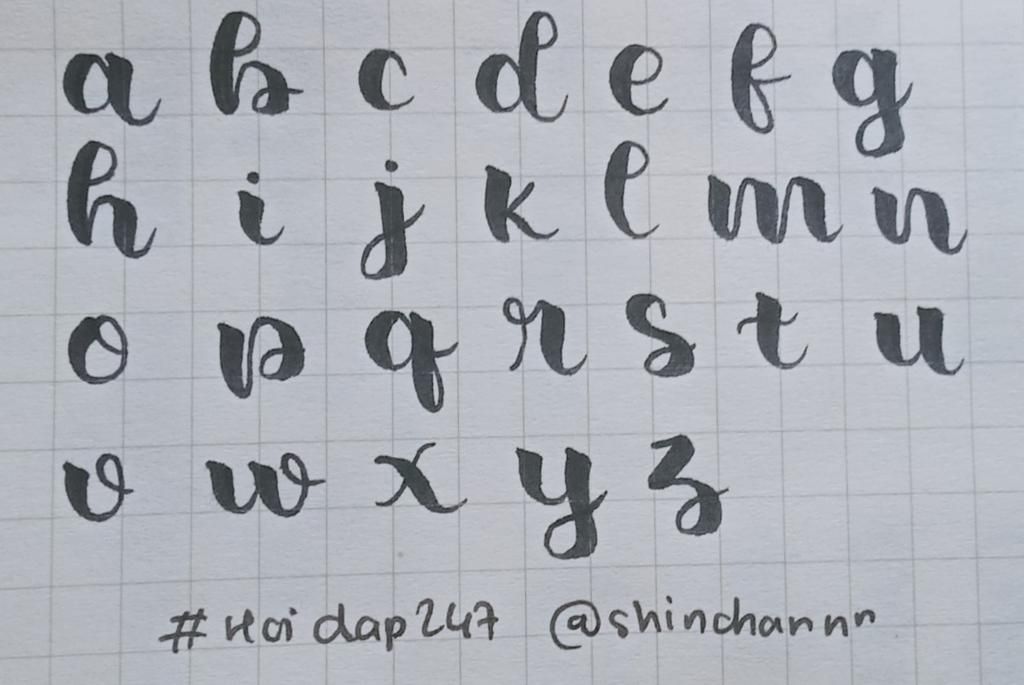 a b c d e f g
h i j k l m n
o p q r s t u
v w x y z
#Hoidap247 @shinchannn